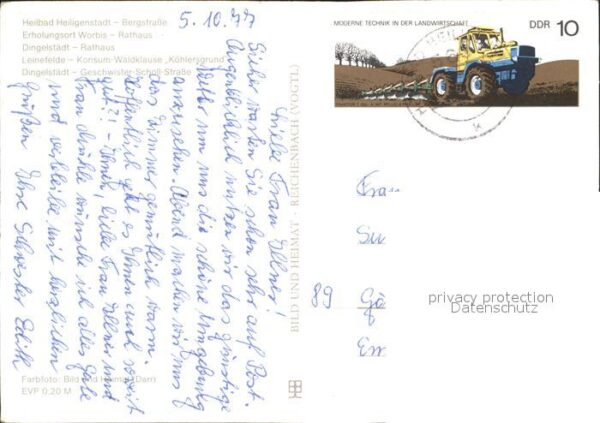 Heilbad Heiligenstadt – Bergstraße
Erholungsort Worbis – Rathaus
Dingelstädt – Rathaus
Leinefelde – Konsum-Waldklause „Köhlersgrund“
Dingelstädt – Geschwister-Scholl-Straße
5.10.77
Liebe Frau Ellner!
Sicher warten Sie schon sehr auf Post.
Augenblicklich nutzen wir das günstige
Wetter um uns die schöne Umgebung
anzusehen. Abend machen wir uns
das Zimmer gemütlich warm.
Hoffentlich geht es Ihnen auch soweit
gut?! – Ihnen, liebe Frau Ellner und
Frau wünsche ich alles Gute
und verbleibe mit herzlichen
Grüßen Ihre Schwester Edith
Farbfoto: Bild und Heimat (Darr)
EVP 0,20 M
BILD UND HEIMAT · REICHENBACH (VOGTL)
MODERNE TECHNIK IN DER LANDWIRTSCHAFT
DDR 10
Frau
Su
89 Gö
Em
privacy protection
Datenschutz